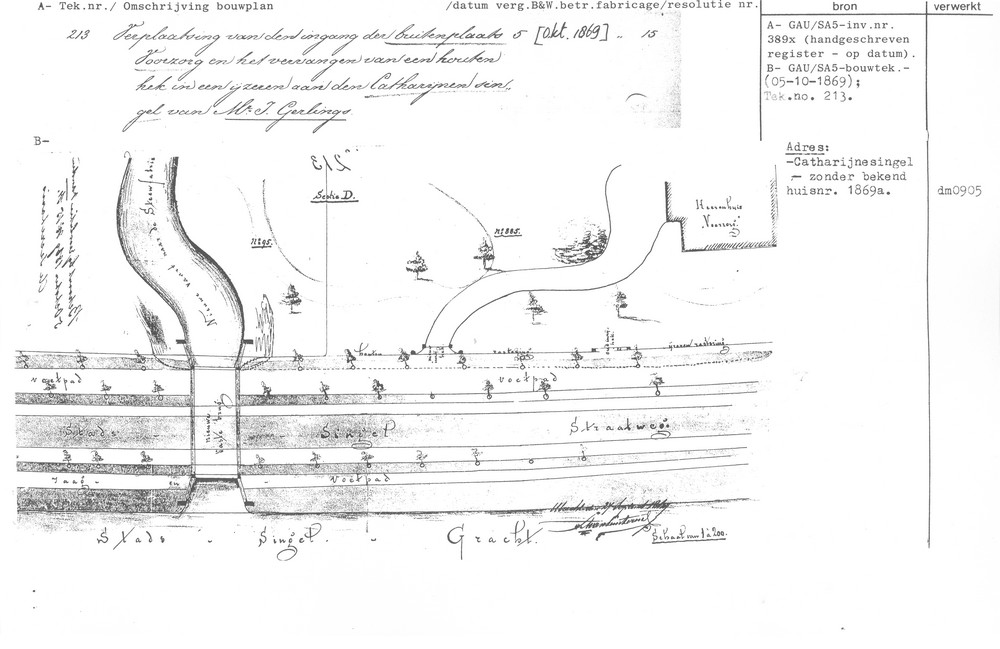 A- Tek.nr./ Omschrijving bouwplan /datum verg.B&W.betr.fabricage/resolutie nr. bron verwerkt
213 Verplaatsing van den ingang der buitenplaats 5 [Okt. 1869] „ 15
Voorzorg en het vervangen van een houten
hek in een ijzeren aan den Catharijnen sin„
gel van Mr. J. Gerlings.
A- GAU/SA5-inv.nr.
389x (handgeschreven
register - op datum).
B- GAU/SA5-bouwtek.-
(05-10-1869);
Tek.no. 213.
B-
Adres:
-Catharijnesingel
- zonder bekend
huisnr. 1869a.
dm0905
213
Sectie D.
No 95.
No 885.
Heerenhuis
Voorzorg
Nieuwe
naar de
houten
voetpad
voetpad
nieuwe
vaste brug
Stads - Singel Straatweg
Jaag - en voetpad
Stads - Singel - Gracht.
Schaal van 1 à 200.